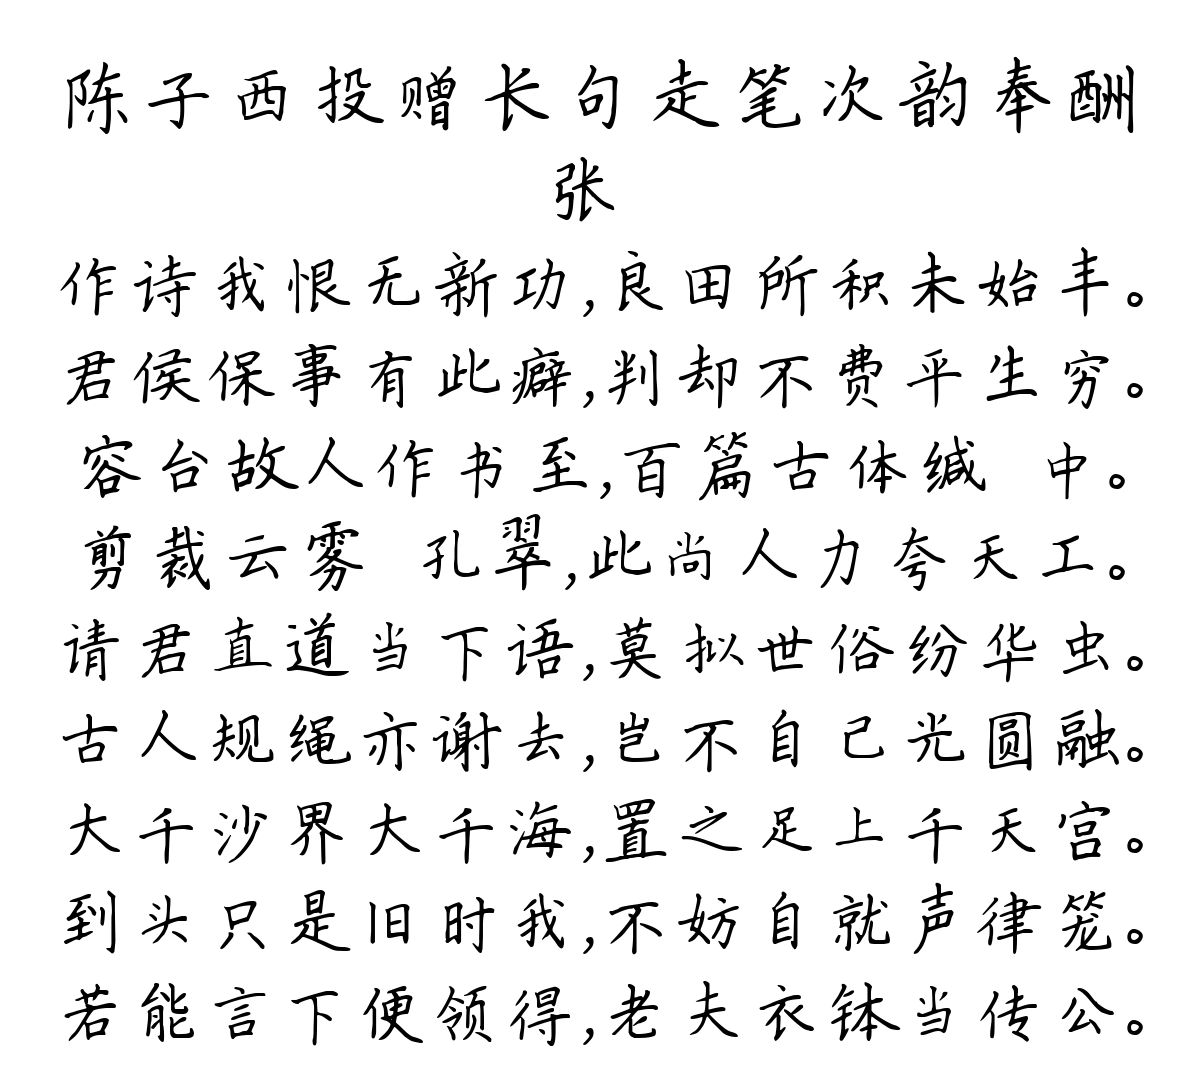 陈子西投赠长句走笔次韵奉酬
张
作诗我恨无新功,良田所积未始丰。
君侯保事有此癖,判却不费平生穷。
容台故人作书至,百篇古体缄 中。
剪裁云雾 孔翠,此尚人力夸天工。
请君直道当下语,莫拟世俗纷华虫。
古人规绳亦谢去,岂不自己光圆融。
大千沙界大千海,置之足上千天宫。
到头只是旧时我,不妨自就声律笼。
若能言下便领得,老夫衣钵当传公。